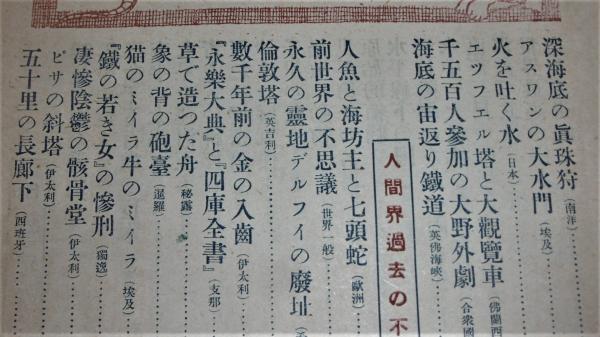 深海底の眞珠狩(南洋)
アスワンの大水門(埃及)
火を吐く水(日本)
エツフエル塔と大觀覽車(佛蘭西
千五百人參加の大野外劇(合衆國
海底の宙返り鐵道(英佛海峽)
人間界過去の不
人魚と海坊主と七頭蛇(歐洲)
前世界の不思議(世界一般)
永久の靈地デルフイの廢址
倫敦塔(英吉利)
數千年前の金の入齒(伊太利)
『永樂大典』と『四庫全書』(支那)
草で造つた舟(秘露)
象の背の砲臺(暹羅)
猫のミイラ牛のミイラ(埃及)
『鐵の若き女』の慘刑(獨逸)
凄慘陰鬱の骸骨堂(伊太利)
ピサの斜塔(伊太利)
五十里の長廊下(西班牙)